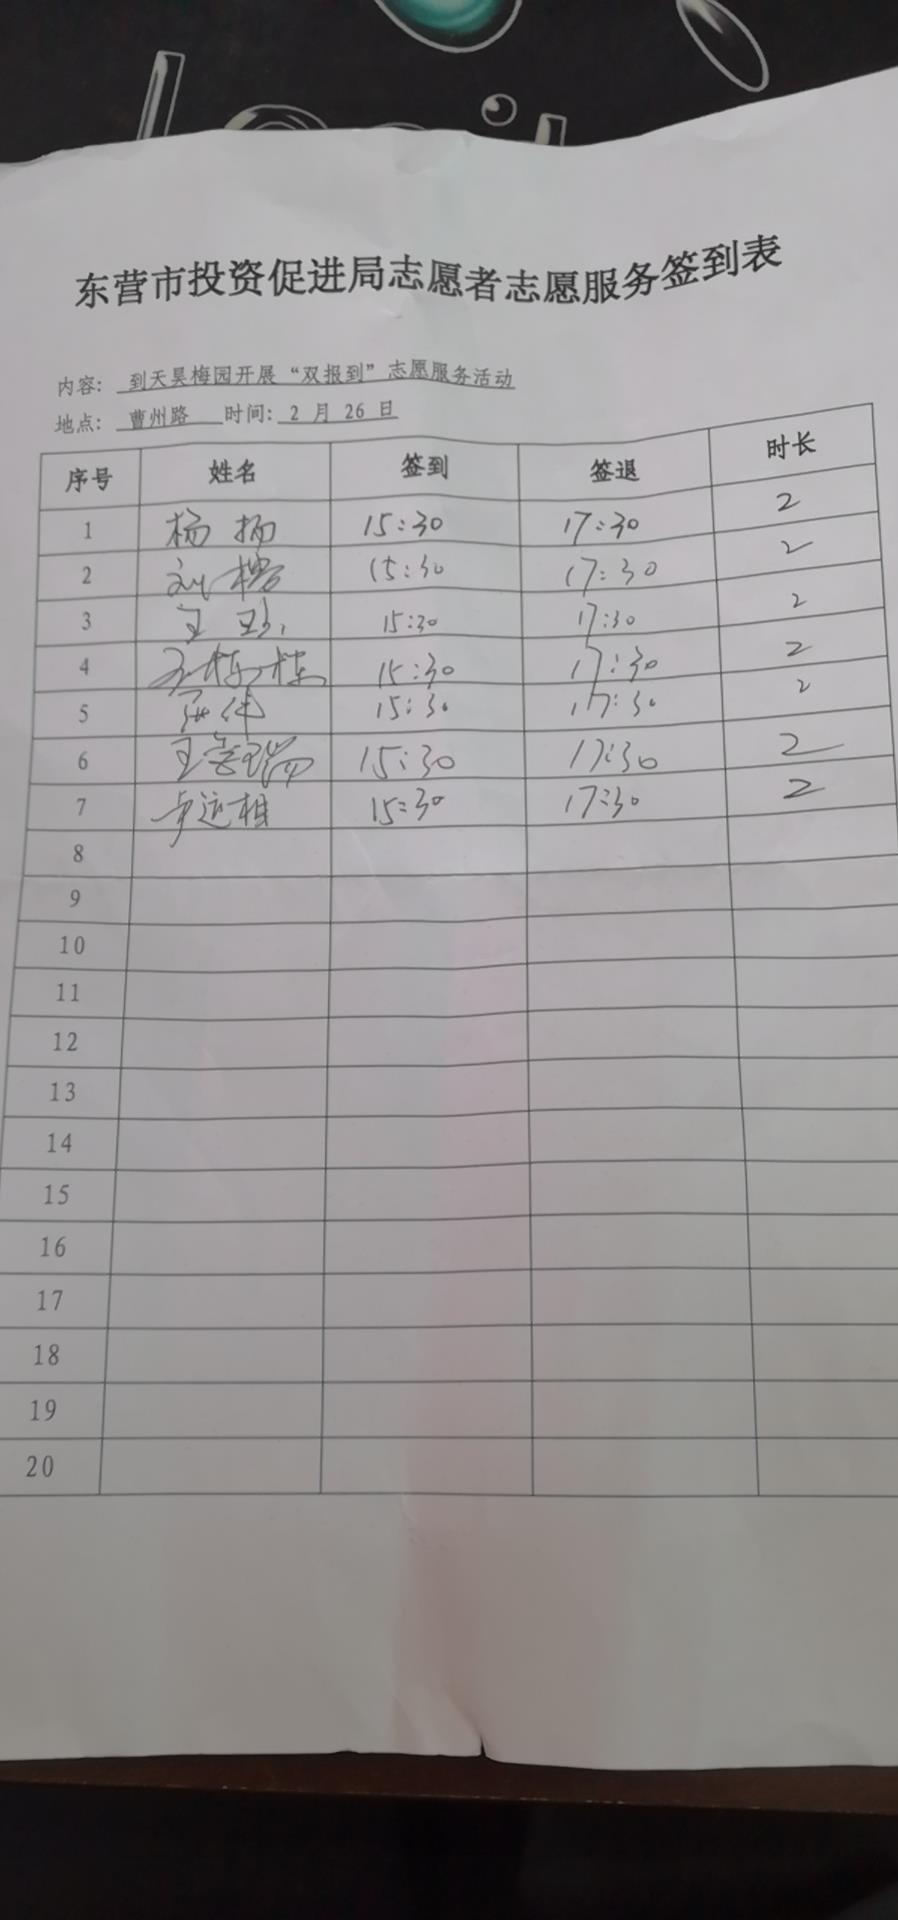 东营市投资促进局志愿者志愿服务签到表
内容: 到天昊梅园开展“双报到”志愿服务活动
地点: 曹州路 时间: 2 月 26 日
序号 姓名 签到 签退 时长
1 杨扬 15:30 17:30 2
2 刘 15:30 17:30 2
3 王 15:30 17:30 2
4 王栋栋 15:30 17:30 2
5 伟 15:30 17:30 2
6 王 15:30 17:30 2
7 15:30 17:30 2
8
9
10
11
12
13
14
15
16
17
18
19
20